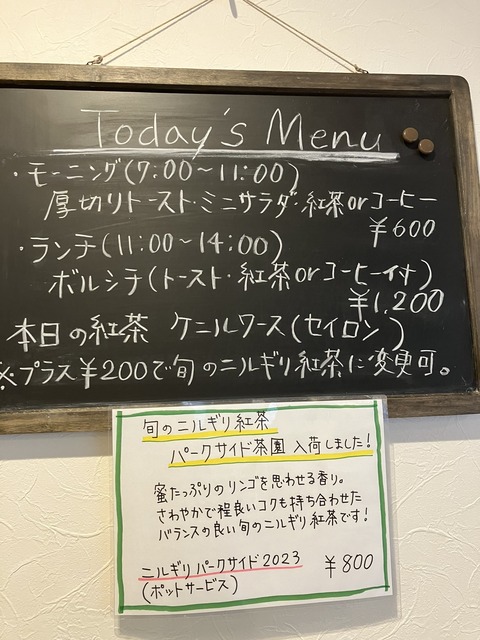 Today's Menu
・モーニング(7:00～11:00)
厚切りトースト・ミニサラダ・紅茶orコーヒー
¥600
・ランチ(11:00～14:00)
ボルシチ(トースト・紅茶orコーヒー付)
¥1,200
本日の紅茶 ケニルワース(セイロン)
※プラス¥200で旬のニルギリ紅茶に変更可。
旬のニルギリ紅茶
パークサイド茶園 入荷しました!
蜜たっぷりのリンゴを思わせる香り。
さわやかで程良いコクも持ち合わせた
バランスの良い旬のニルギリ紅茶です!
ニルギリパークサイド2023 ¥800
(ポットサービス)